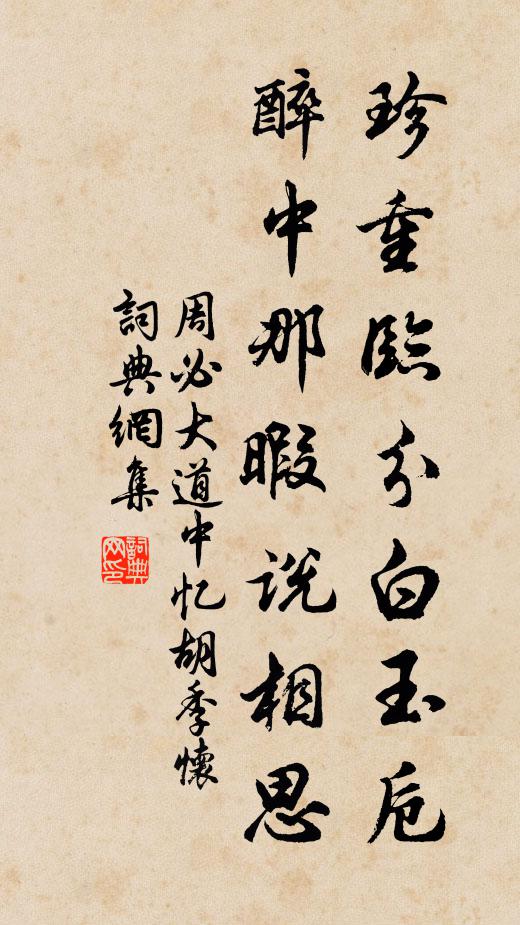 珍重臨分白玉卮
醉中那暇说相思
周必大道中忆胡季懷
詞典網集
詞典网印